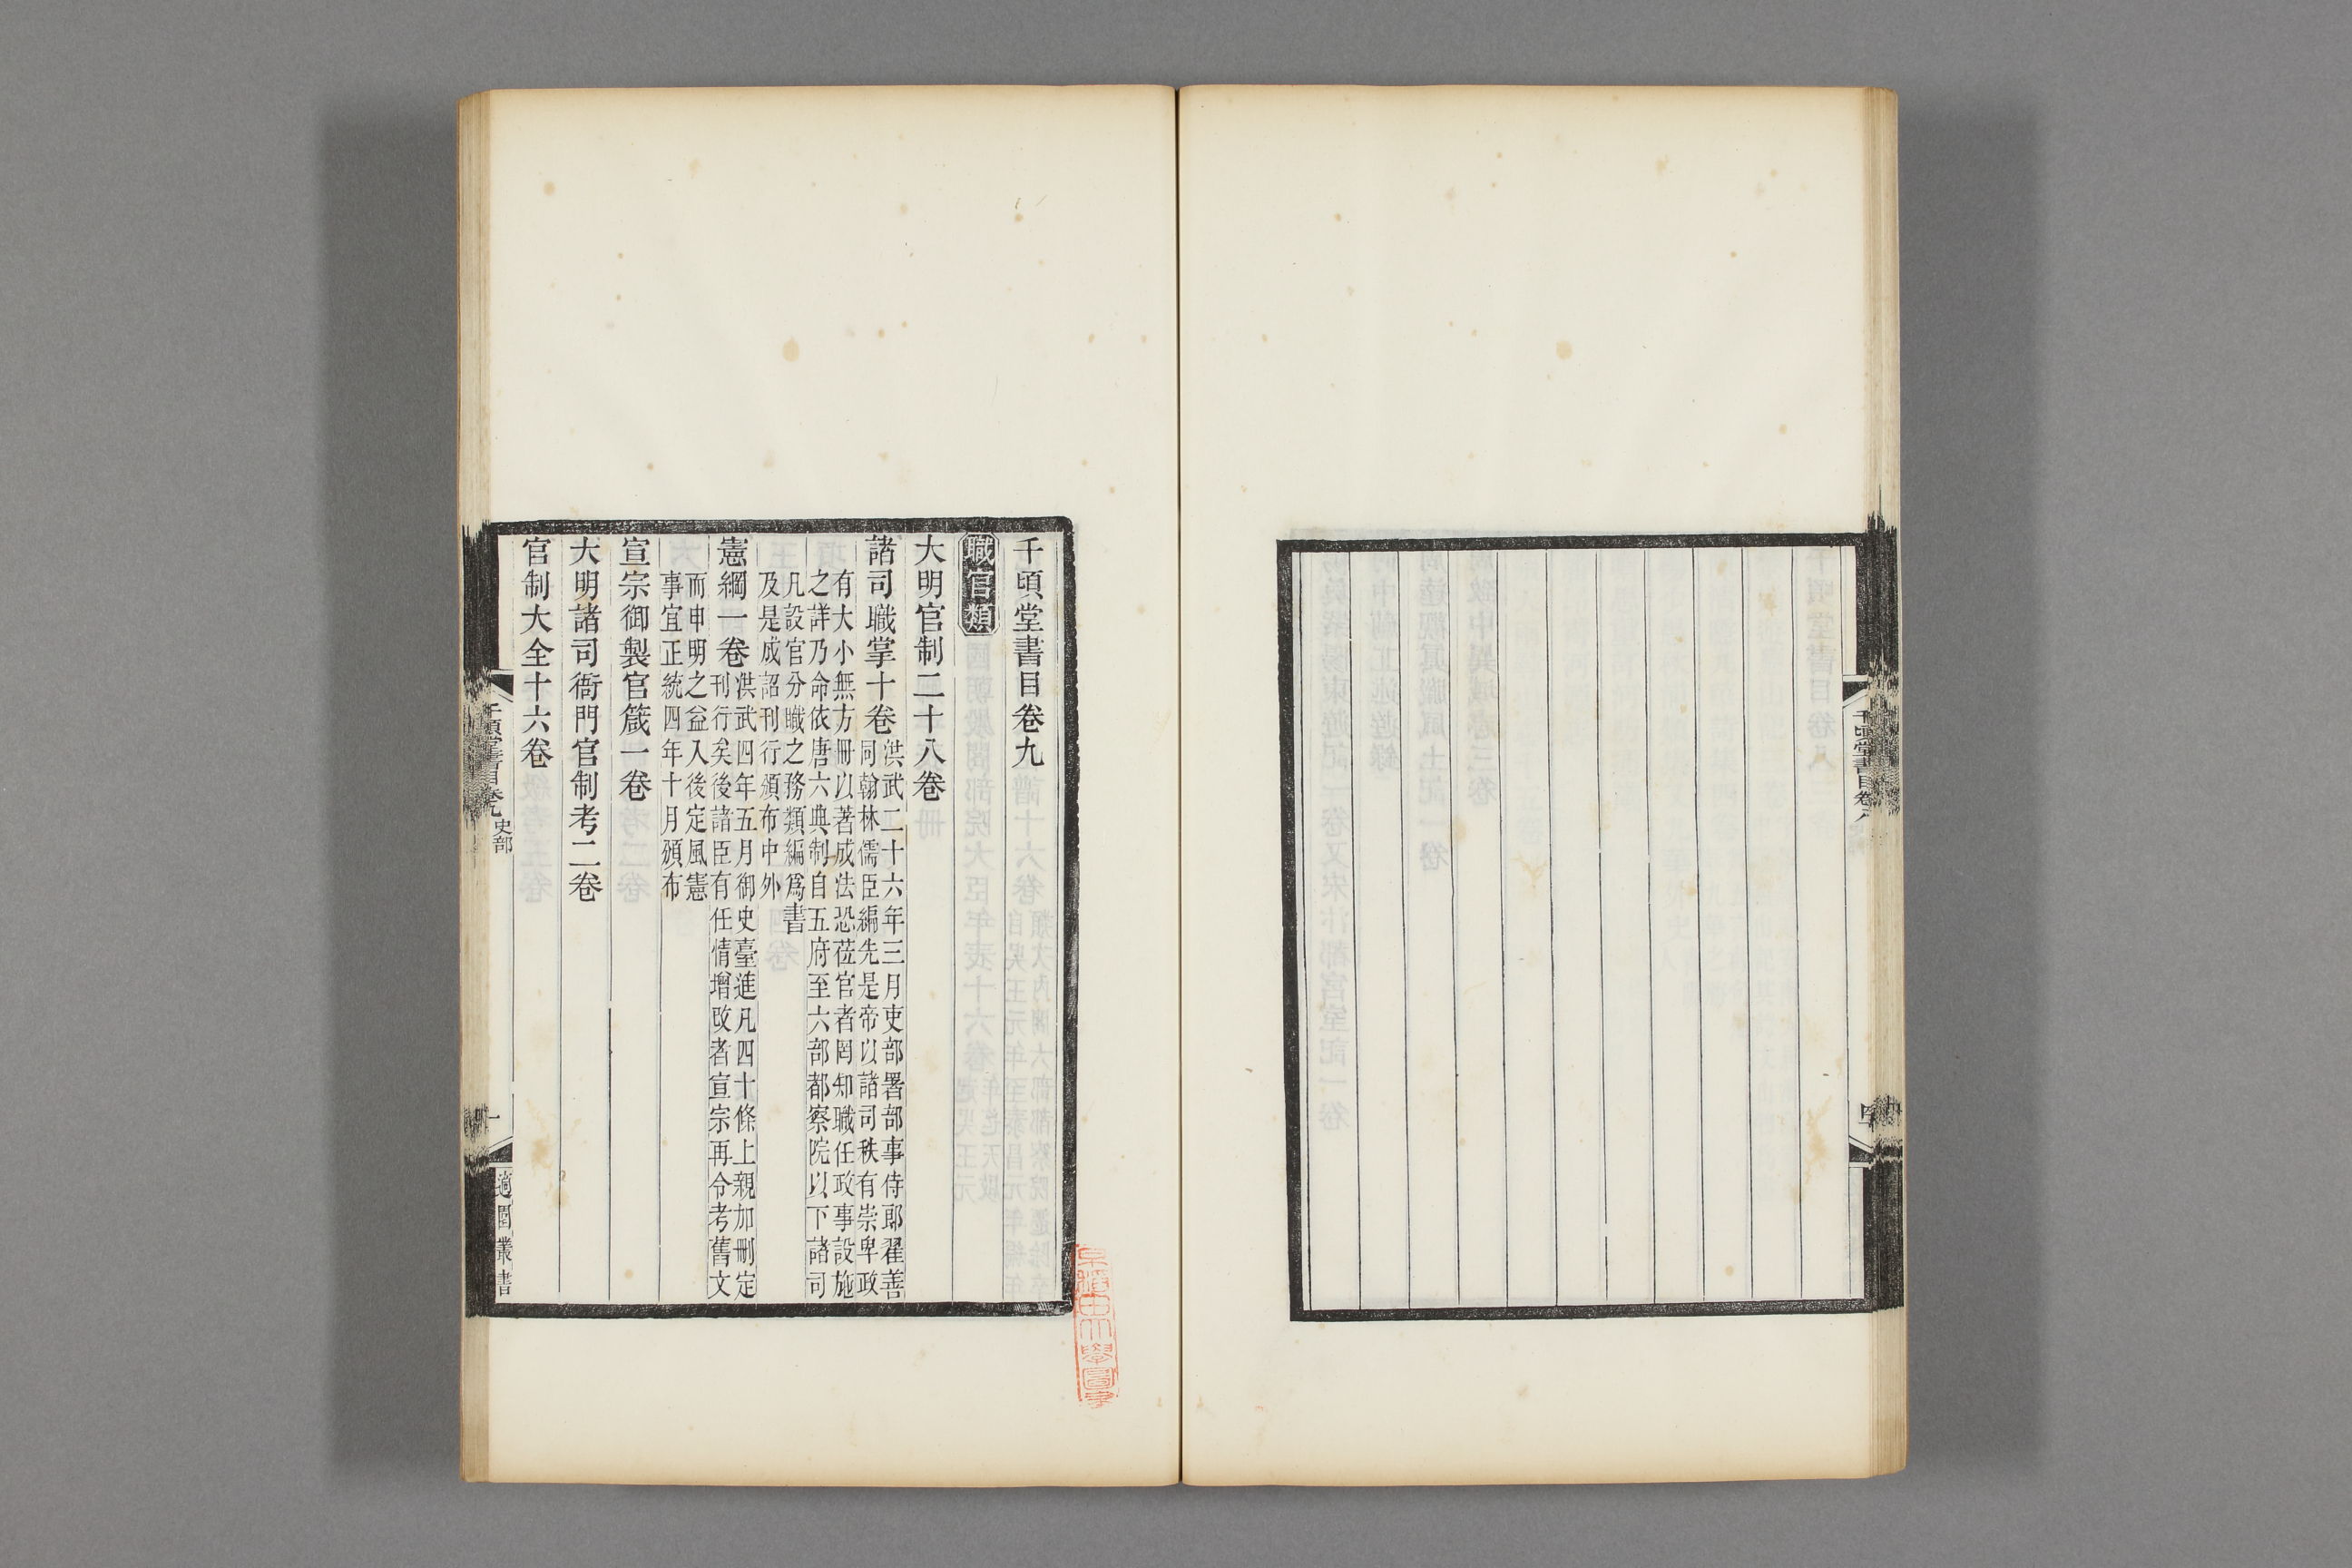 千頃堂書目卷九
職官類
大明官制二十八卷
諸司職掌十卷
洪武二十六年三月吏部署部事侍郎翟善
同翰林儒臣編先是帝以諸司秩有崇卑政
有大小無方冊以著成法恐莅官者罔知職任政事設施
之詳乃命依唐六典制自五府至六部都察院以下諸司
凡設官分職之務類編爲書
及是成詔刊行頒布中外
憲綱一卷
洪武四年五月御史臺進凡四十條上親加刪定
刊行矣後諸臣有任情增改者宣宗再令考舊文
而申明之益入後定風憲
事宜正統四年十月頒布
宣宗御製官箴一卷
大明諸司衙門官制考二卷
官制大全十六卷
千頃堂書目卷九
史部
一
適園叢書
千頃堂書目卷八